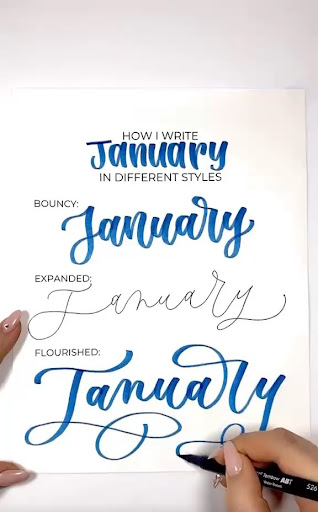 HOW I WRITE
January
IN DIFFERENT STYLES
BOUNCY:
January
EXPANDED:
January
FLOURISHED:
January
Tombow ABT
526